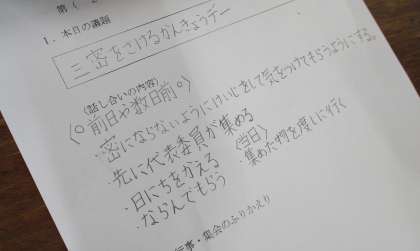 1. 本日の議題
三密をさけるかんきょうデー
(話し合いの内容)
〈○前日や数日前○〉
・密にならないようにけいじをして気をつけてもらうようにする。
・先に代表委員が集める
・日にちをかえる
・ならんでもらう
〈当日〉
・集めた物を渡しに行く
行事・集会のふりかえり